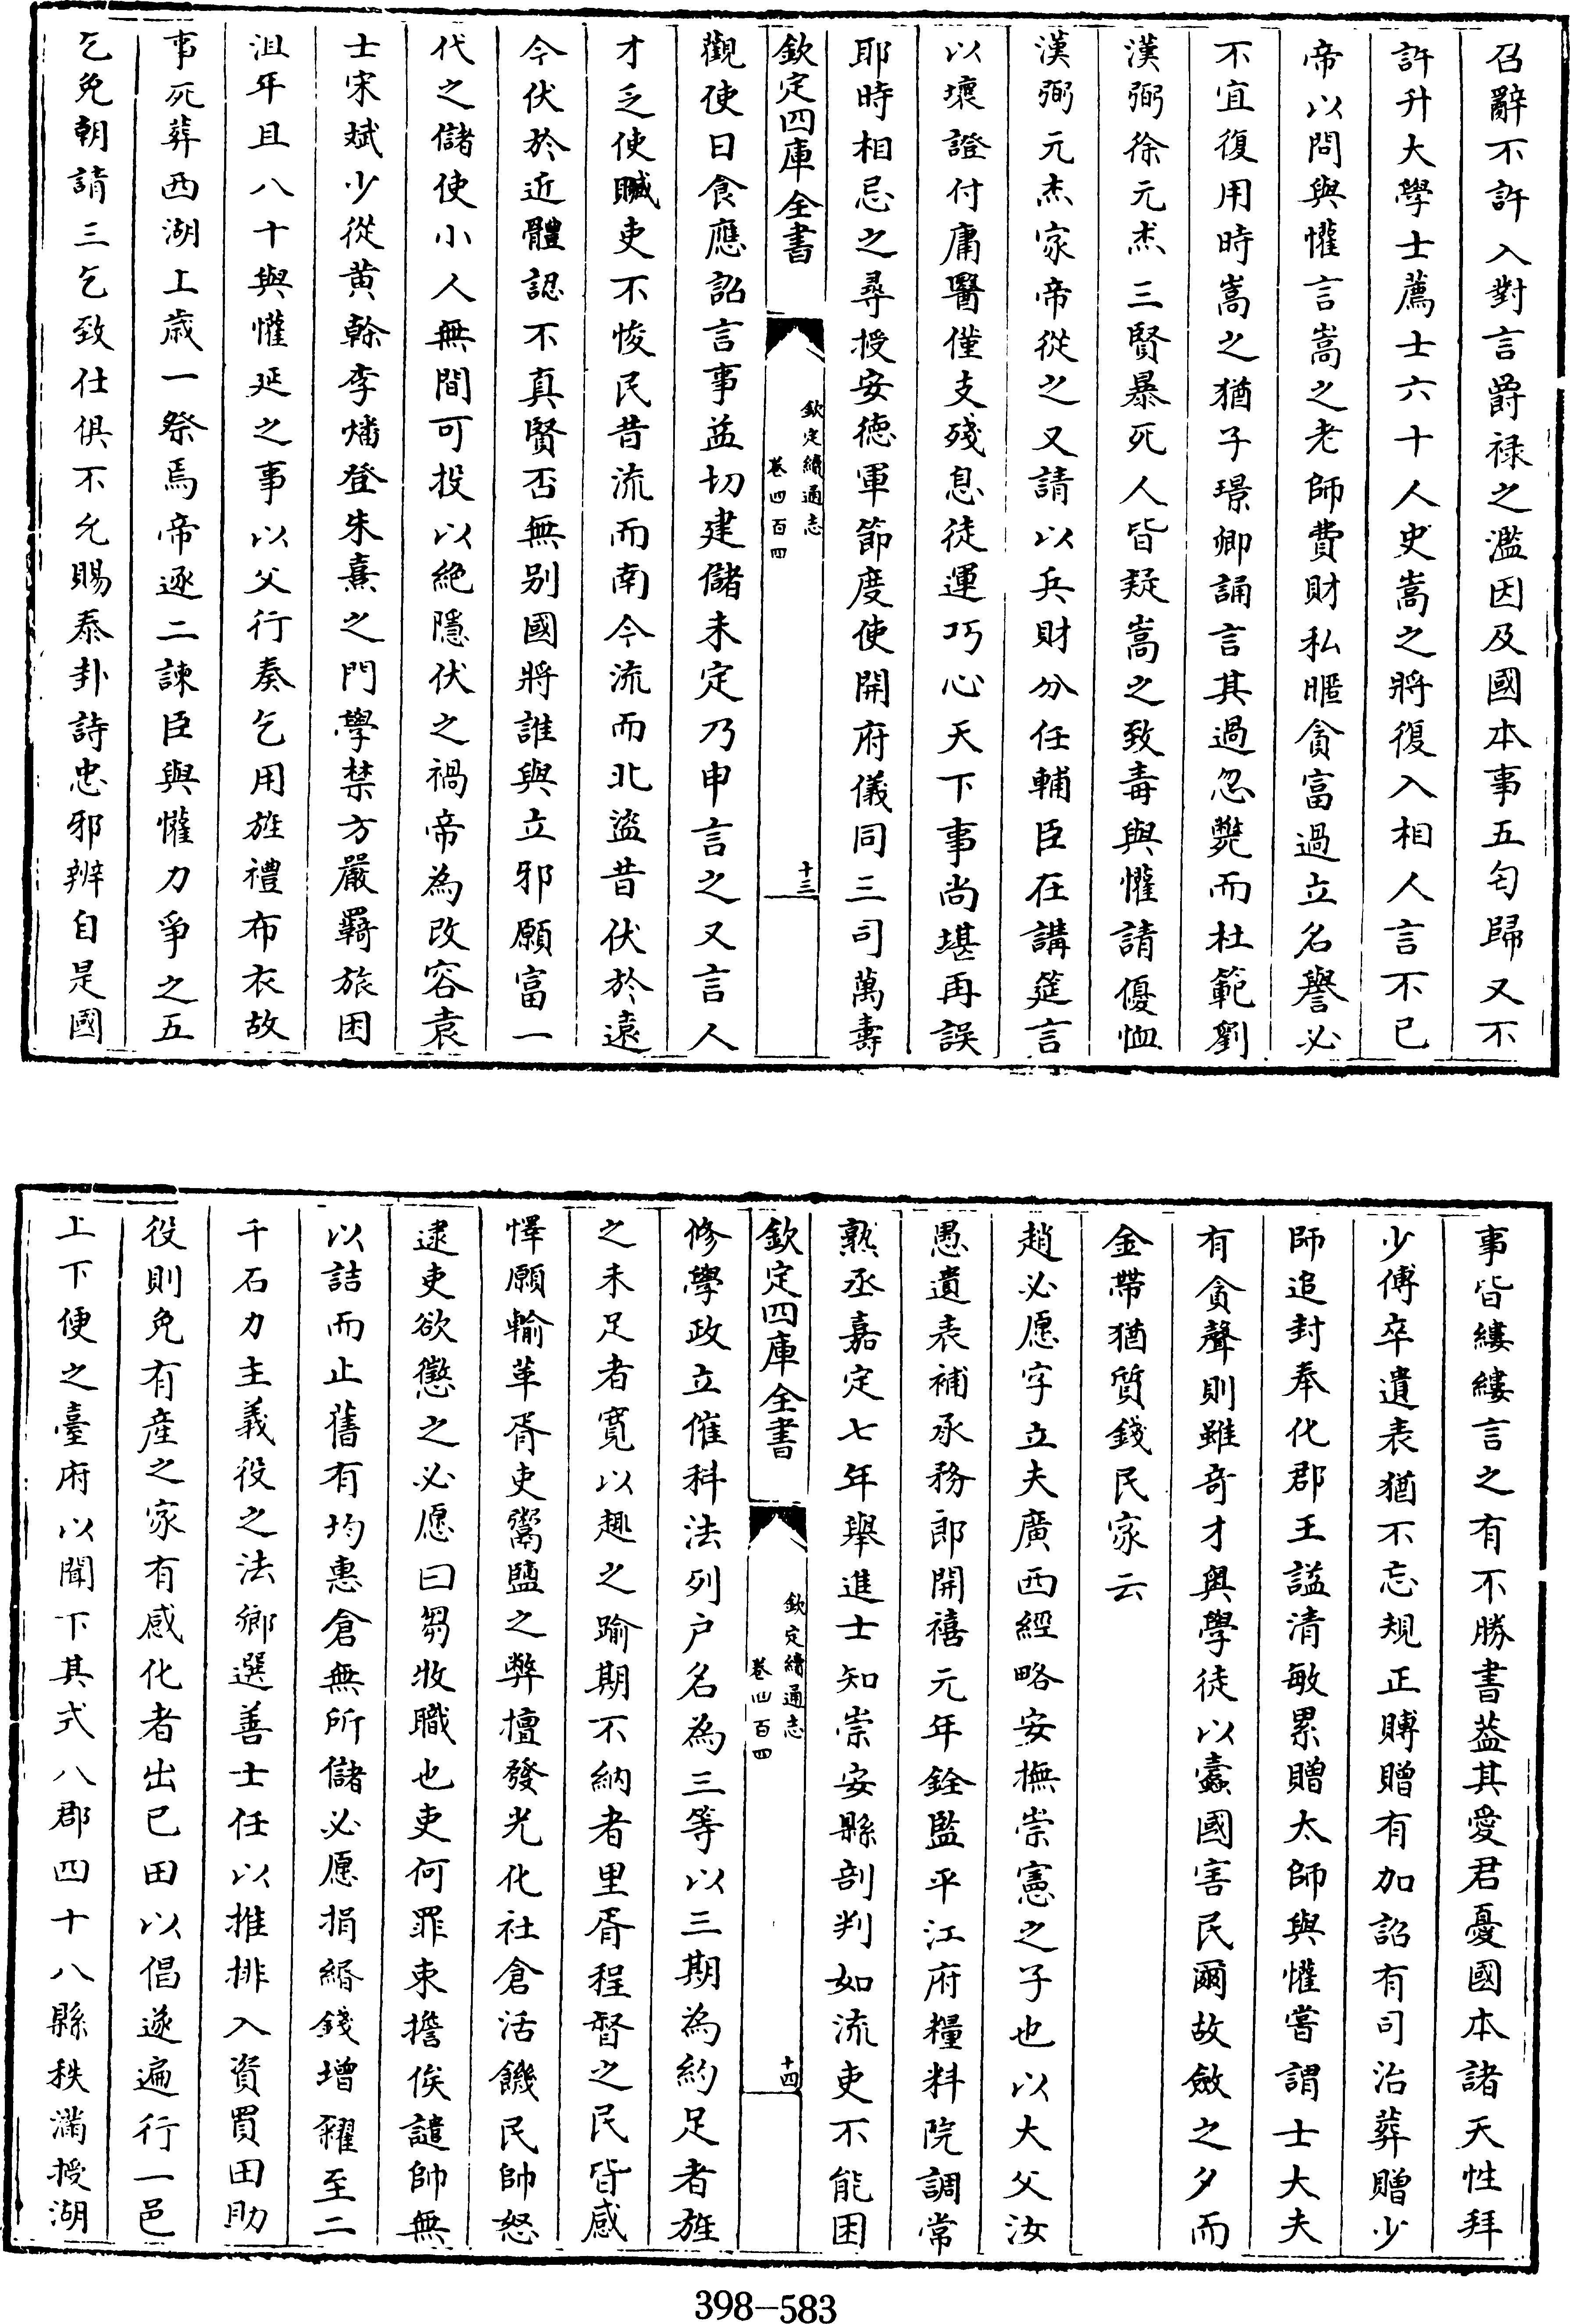 召辭不許入對言爵禄之濫因及國本事五匄歸又不
許升大學士薦士六十人史嵩之將復入相人言不已
帝以問與懽言嵩之老師費財私暱貪富過立名譽必
不宜復用時嵩之猶子璟卿誦言其過忽斃而杜範劉
漢弼徐元杰三賢暴死人皆疑嵩之致毒與懽請優恤
漢弼元杰家帝從之又請以兵財分任輔臣在講筵言
以壞證付庸醫僅支殘息徒運巧心天下事尚堪再誤
耶時相忌之尋授安德軍節度使開府儀同三司萬壽
欽定四庫全書
欽定續通志
卷四百四
十三
觀使日食應詔言事益切建儲未定乃申言之又言人
才乏使贓吏不悛民昔流而南今流而北盜昔伏於遠
今伏於近體認不真賢否無别國將誰與立邪願富一
代之儲使小人無間可投以絶隱伏之禍帝為改容袁
士宋斌少從黄榦李燔登朱熹之門學禁方嚴羇旅困
沮年且八十與懽延之事以父行奏乞用旌禮布衣故
事死葬西湖上歲一祭焉帝逐二諫臣與懽力爭之五
乞免朝請三乞致仕俱不允賜泰卦詩忠邪辨自是國
事皆縷縷言之有不勝書葢其愛君憂國本諸天性拜
少傅卒遺表猶不忘規正賻贈有加詔有司治葬贈少
師追封奉化郡王謚清敏累贈太師與懽嘗謂士大夫
有貪聲則雖奇才奥學徒以蠧國害民爾故斂之夕而
金帶猶質錢民家云
趙必愿字立夫廣西經略安撫崇憲之子也以大父汝
愚遺表補承務郎開禧元年銓監平江府糧料院調常
熟丞嘉定七年舉進士知崇安縣剖判如流吏不能困
欽定四庫全書
欽定續通志
卷四百四
十四
修學政立催科法列户名為三等以三期為約足者旌
之未足者寛以趣之踰期不納者里胥程督之民皆感
懌願輸革胥吏鬻鹽之弊擅發光化社倉活饑民帥怒
逮吏欲懲之必愿曰芻牧職也吏何罪束擔俟譴帥無
以詰而止舊有均惠倉無所儲必愿捐緡錢增糴至二
千石力主義役之法鄉選善士任以推排入資買田助
役則免有産之家有感化者出已田以倡遂遍行一邑
上下便之臺府以聞下其式八郡四十八縣秩滿授湖
398-583